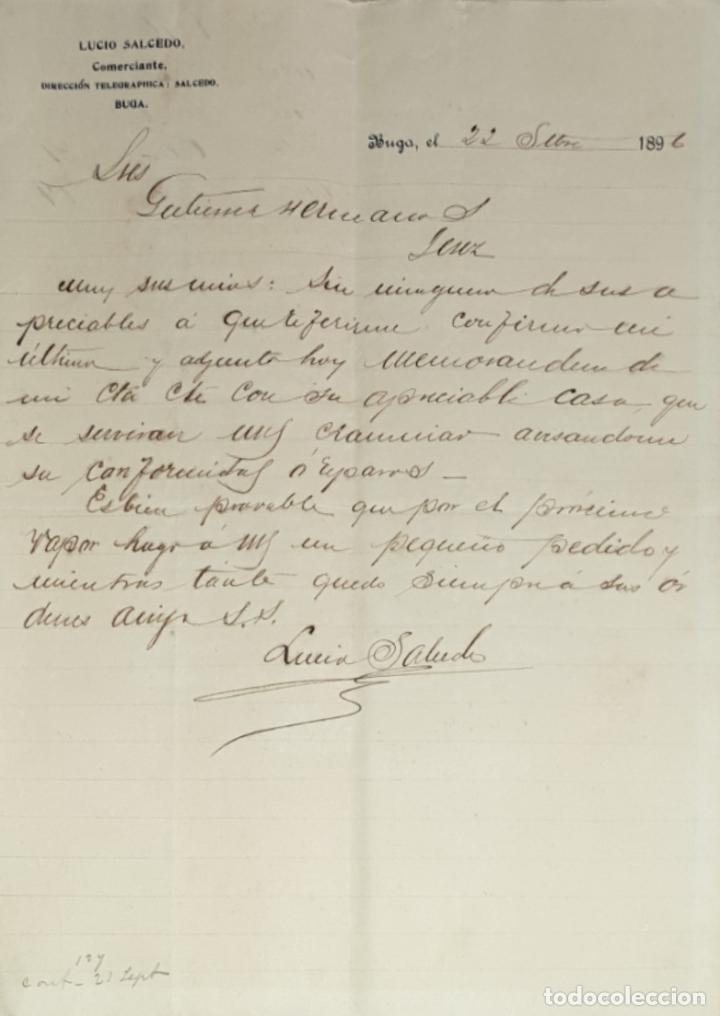 LUCIO SALCEDO,
Comerciante.
DIRECCIÓN TELEGRAPHICA: SALCEDO.
BUGA.
Buga, el 22 Stbre 1896
Srès
Gutierrez Hermanos
Jerez
Muy sres mios: Sin ninguna de sus a
preciables á que referirme confirmo mi
última y adjunto hoy Memorandum de
mi Cta Cte con su apreciable casa, que
se serviran Uds examinar avisandome
su conformidad ó reparos—
Es bien provable que por el próximo
vapor haga á Uds un pequeño pedido y
mientras tanto quedo siempre á sus ór
denes amigo S.S.
Lucio Salcedo
127
Cont— 21 Sept
todocoleccion